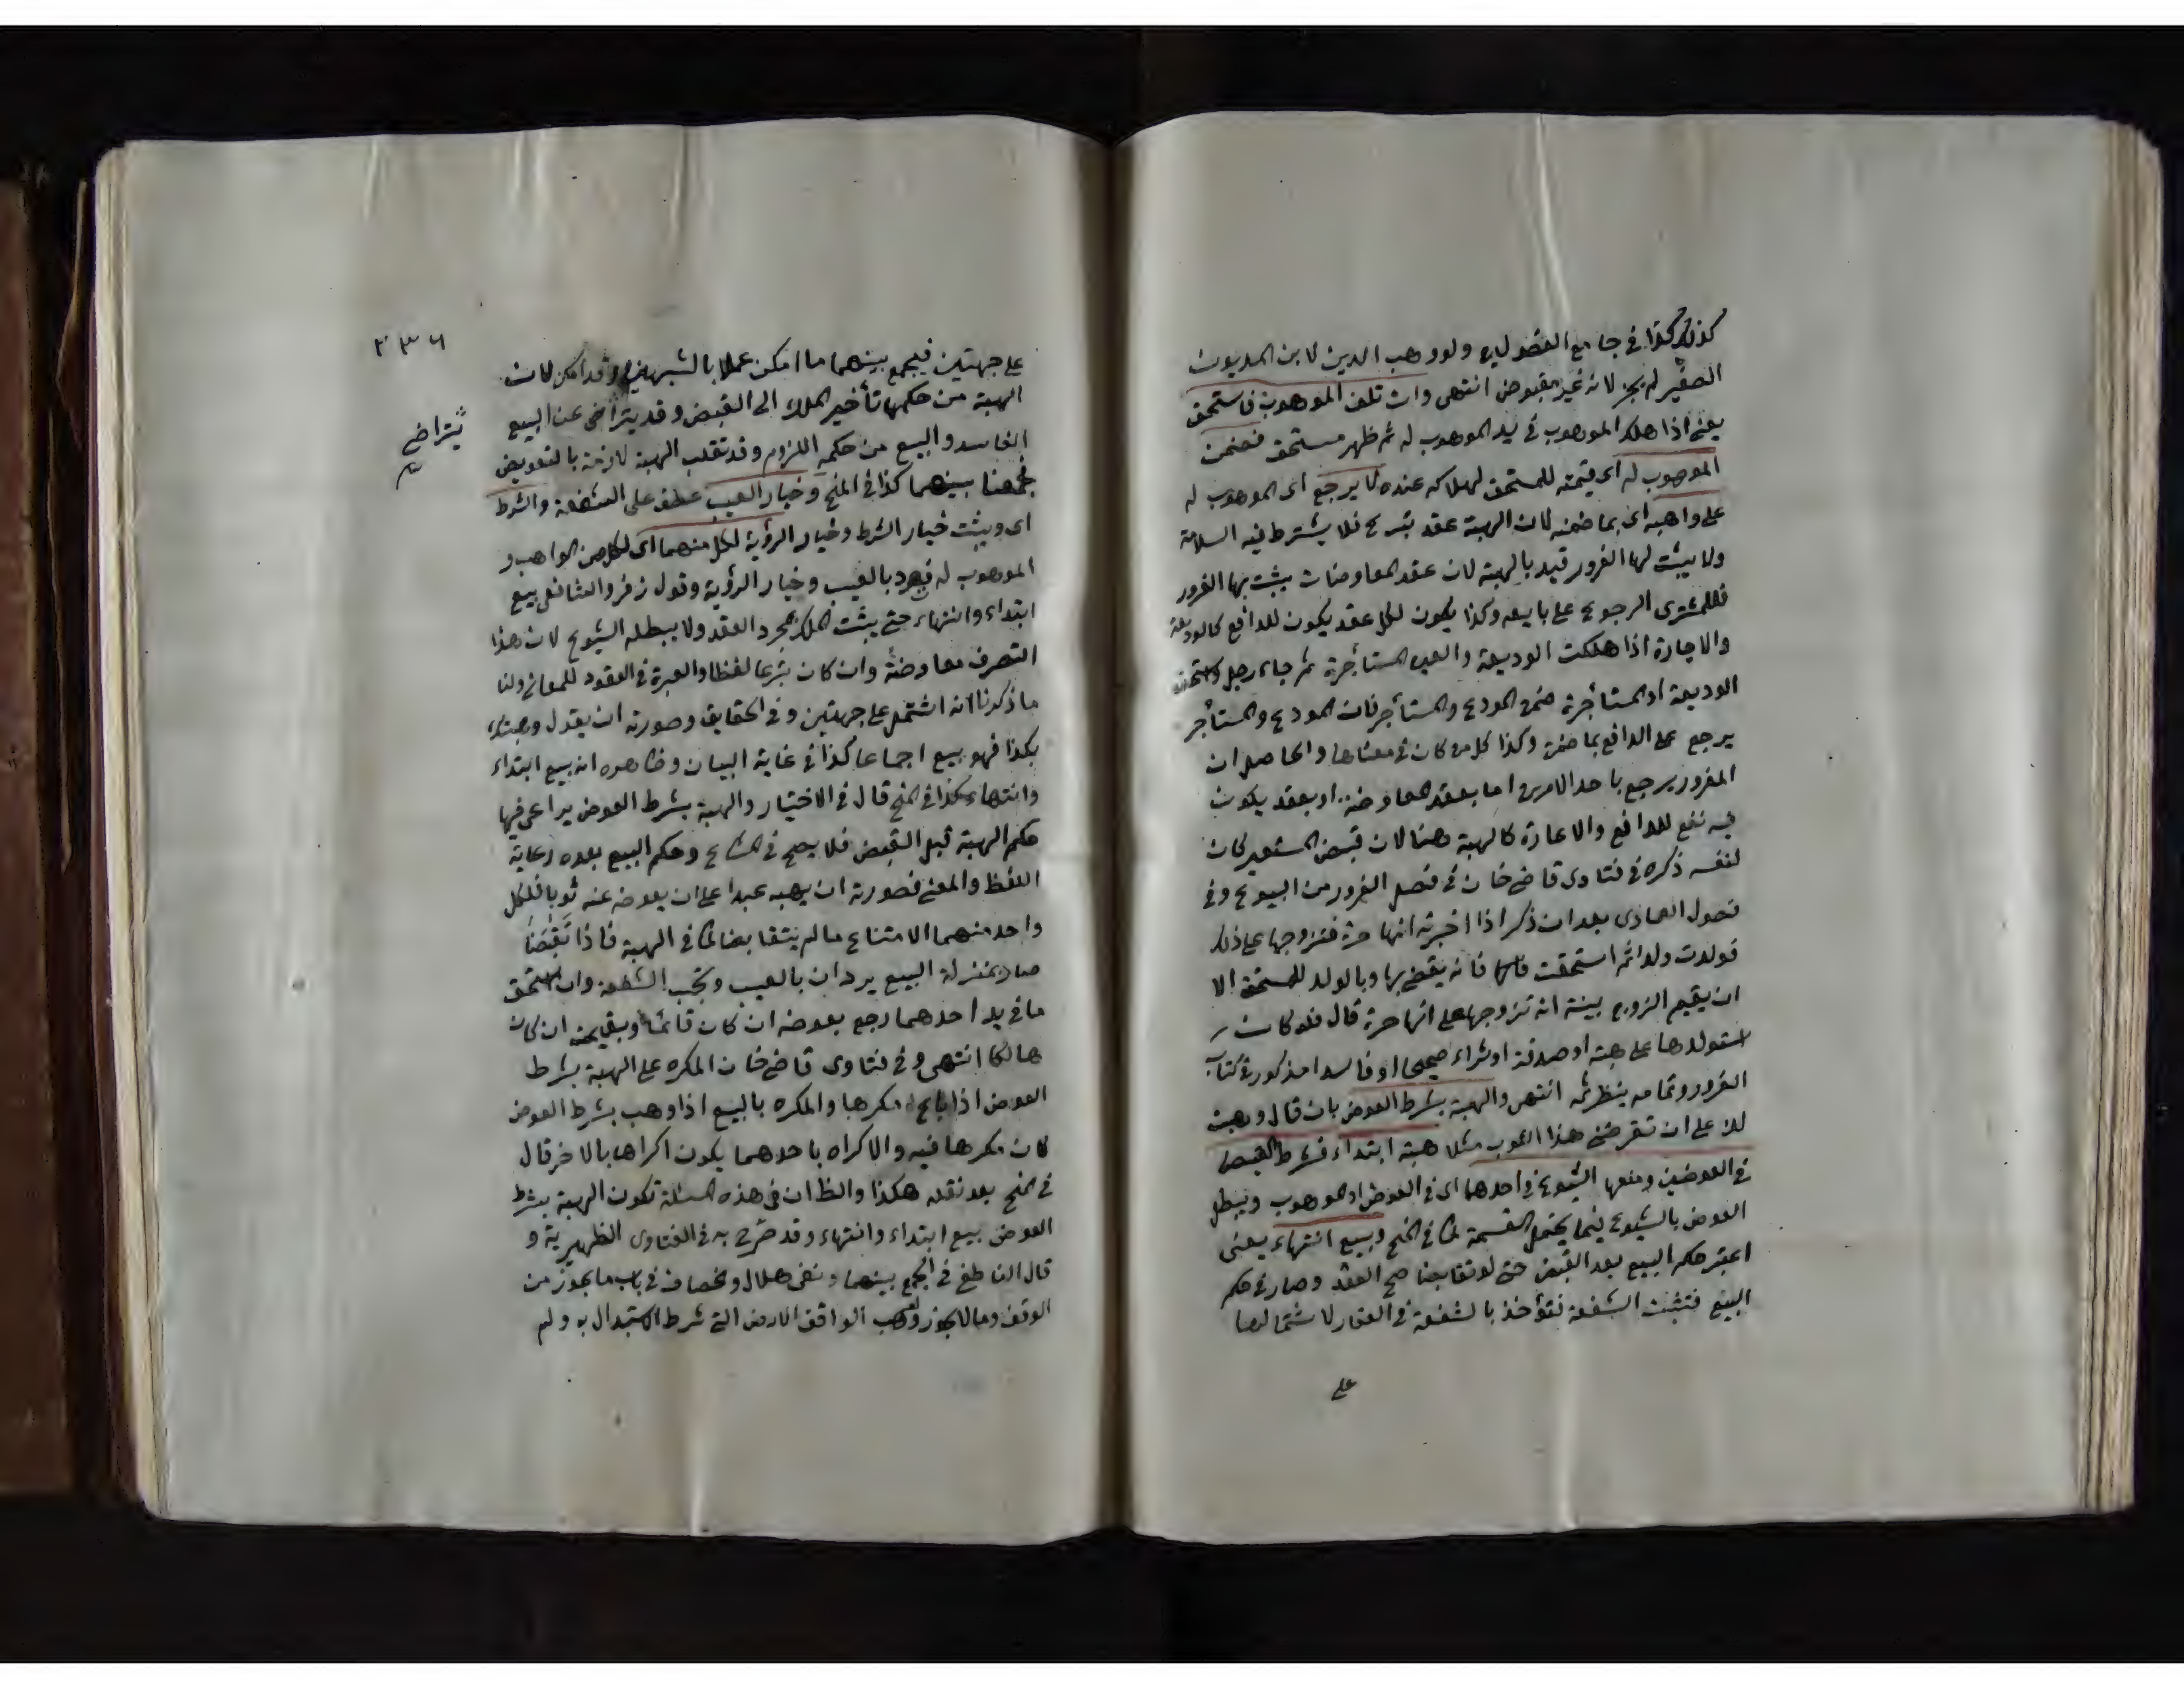 كذلك كذا في جامع الفصولين ولو وهب الدين لابن المديون
الصغير لم يجز لانه غير مقبوض انتهى وان تلف الموهوب فاستحق
يعني اذا هلك الموهوب في يد الموهوب له ثم ظهر مستحق فضمن
الموهوب له اى قيمته للمستحق لهلاكه عنده لا يرجع اى الموهوب له
على واهبه اى بما ضمنه لان الهبة عقد تبرع فلا يشترط فيه السلامة
ولا يثبت لها الغرور قيد بالهبة لان عقد المعاوضات يثبت بها الغرور
فللمشترى الرجوع على بايعه وكذا يكون لكل عقد يكون للدافع كالوديعة
والاجارة اذا هلكت الوديعة والعين المستأجرة ثم جاء رجل واستحق
الوديعة او المستأجرة ضمن المودع والمستأجر فان المودع والمستأجر
يرجع على الدافع بما ضمن وكذا كل من كان في معناها والحاصل ان
المغرور يرجع باحد الامرين اما بعقد المعاوضة او بعقد يكون
فيه نفع للدافع والاعارة كالهبة هنا لان قبض المستعير كان
لنفسه ذكره في فتاوى قاضي خان في فصل الغرور من البيوع وفي
فصول العمادى بعد ان ذكر اذا اخبرته انها حرة فتزوجها على ذلك
فولدت ولدا ثم استحقت فانه يقضى بها وبالولد للمستحق الا
ان يقيم الزوج بينة انه تزوجها على انها حرة قال فلو كان
استولدها على هبة او صدقة او شراء صحيحا او فاسدا مذكور في كتاب
الغرور وتمامه ينظر ثمه انتهى والهبة بشرط العوض بان قال وهبت
لك على ان تعوضني هذا الثوب مثلا هبة ابتداء فشرط القبض
في العوضين ومنعها الشيوع في احدهما اى في العوض او الموهوب ويبطل
العوض بالشيوع فيما يحتمل القسمة كما في المنح وبيع انتهاء يعني
اعتبر حكم البيع بعد القبض حتى لو تقابضا صح العقد وصار في حكم
البيع فتثبت الشفعة فتؤخذ بالشفعة في العقار لاشتمالها
على
٢٣٦
على جهتين فيجمع بينهما ما امكن عملا بالشبهين وقد امكن لان
الهبة من حكمها تأخير الملك الى القبض وقد يتراخى عن البيع
يتراخى
الفاسد والبيع من حكمه اللزوم وقد تنقلب الهبة لازمة بالتعويض
فجمعنا بينهما كذا في المنح وخيار العيب عطف على الشفعة والشرط
اى ويثبت خيار الشرط وخيار الرؤية لكل منهما اى لكل من الواهب و
الموهوب له فيرد بالعيب وخيار الرؤية وقول زفر والشافعي بيع
ابتداء وانتهاء حتى يثبت الملك بمجرد العقد ولا يبطله الشيوع لان هذا
التصرف معاوضة وان كان تبرعا لفظا والعبرة في العقود للمعاني ولنا
ما ذكرنا انه اشتمل على جهتين وفي الحقايق وصورته ان يقول وهبتك
بكذا فهو بيع اجماعا كذا في غاية البيان وظاهره انه بيع ابتداء
وانتهاء كذا في المنح قال في الاختيار والهبة بشرط العوض يراعى فيها
حكم الهبة قبل القبض فلا يصح في المشاع وحكم البيع بعده رعاية
اللفظ والمعنى فصورته ان يهبه عبدا على ان يعوضه عنه ثوبا فلكل
واحد منهما الامتناع ما لم يتقابضا كما في الهبة فاذا تقبضا
صار بمنزلة البيع يردان بالعيب وتجب الشفعة وان استحق
ما في يد احدهما رجع بعوضه ان كان قائما وبقيمته ان كان
هالكا انتهى وفي فتاوى قاضي خان المكره على الهبة بشرط
العوض اذا باع مكرها والمكره بالبيع اذا وهب بشرط العوض
كان مكرها فيه والاكراه باحدهما يكون اكراها بالاخر قال
في المنح بعد نقله هكذا والظ ان في هذه المسئلة تكون الهبة بشرط
العوض بيع ابتداء وانتهاء وقد صرح به في الفتاوى الظهيرية و
قال الناطفي في الجمع بينهما وفي هلال والخصاف في باب ما يجوز من
الوقف وما لا يجوز ولو وهب الواقف الارض التي شرط الاستبدال به ولم